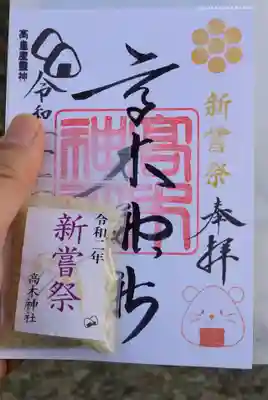 高皇産霊神
新嘗祭
奉拝
高木神社
令和
令和二年
新嘗祭
高木神社